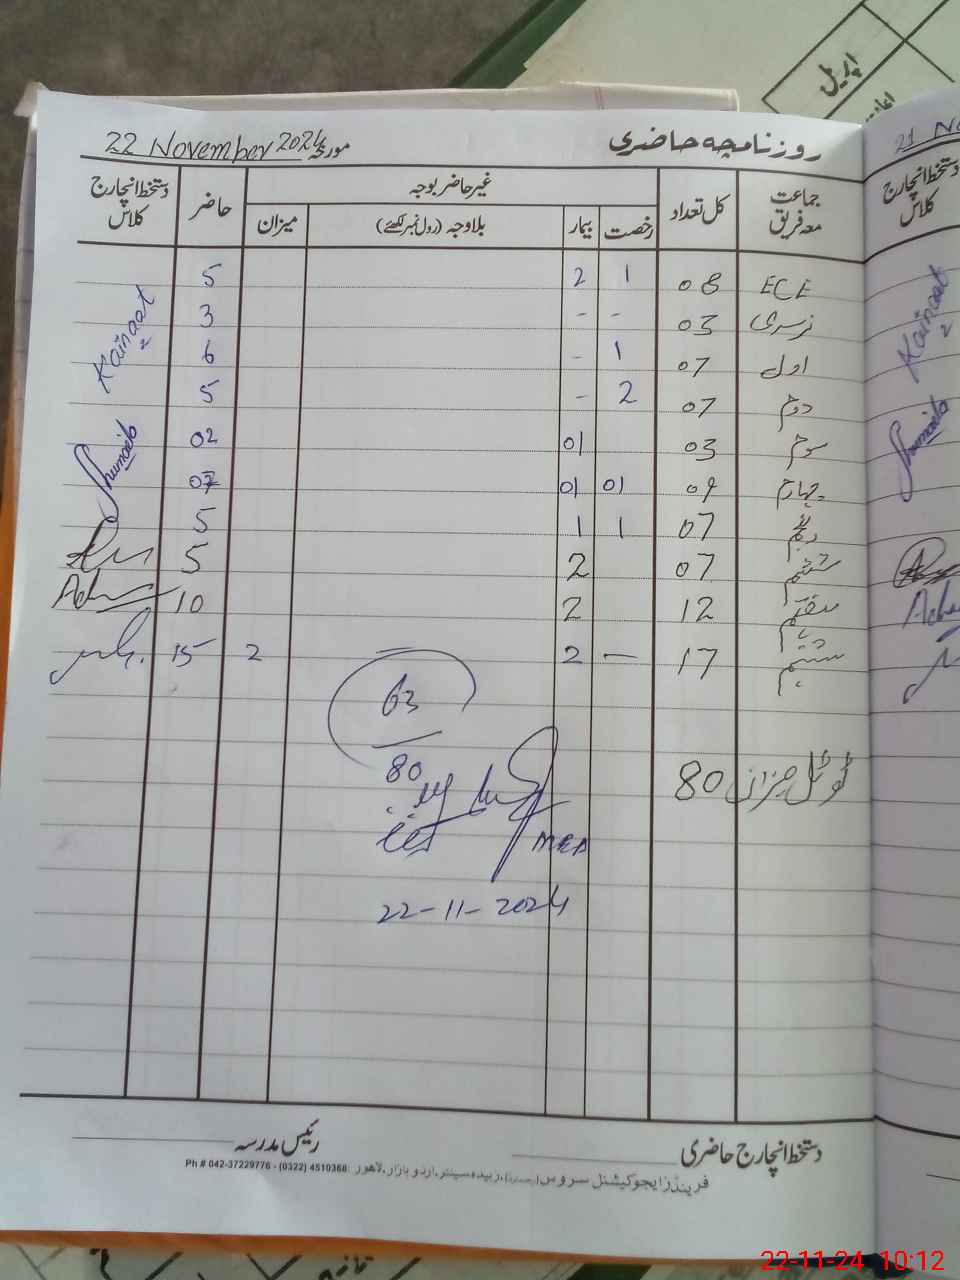 اپریل
روزنامچہ حاضری مورخہ 22 November 2024
جماعت معہ فریق کل تعداد غیر حاضر بوجہ حاضر دستخط انچارج کلاس
رخصت بیمار بلاوجہ (رول نمبر لکھئے) میزان
ECE 08 1 2 5
نرسری 03 - - 3 Kainaat
اول 07 1 - 6
دوم 07 2 - 5
سوم 03 01 02 Shumaila
چہارم 09 01 01 07
پنجم 07 1 1 5
ششم 07 2 5
ہفتم 12 2 10
ہشتم 17 — 2 2 15
63
80
ٹوٹل میزان 80
22-11-2024
دستخط انچارج حاضری
رئیس مدرسہ
فرینڈز ایجوکیشنل سروس زبیدہ سینٹر، اردو بازار، لاہور Ph # 042-37229776 - (0322) 4510368
21 No
دستخط انچارج کلاس
Kainaat
Shumaila
22-11-24 10:12